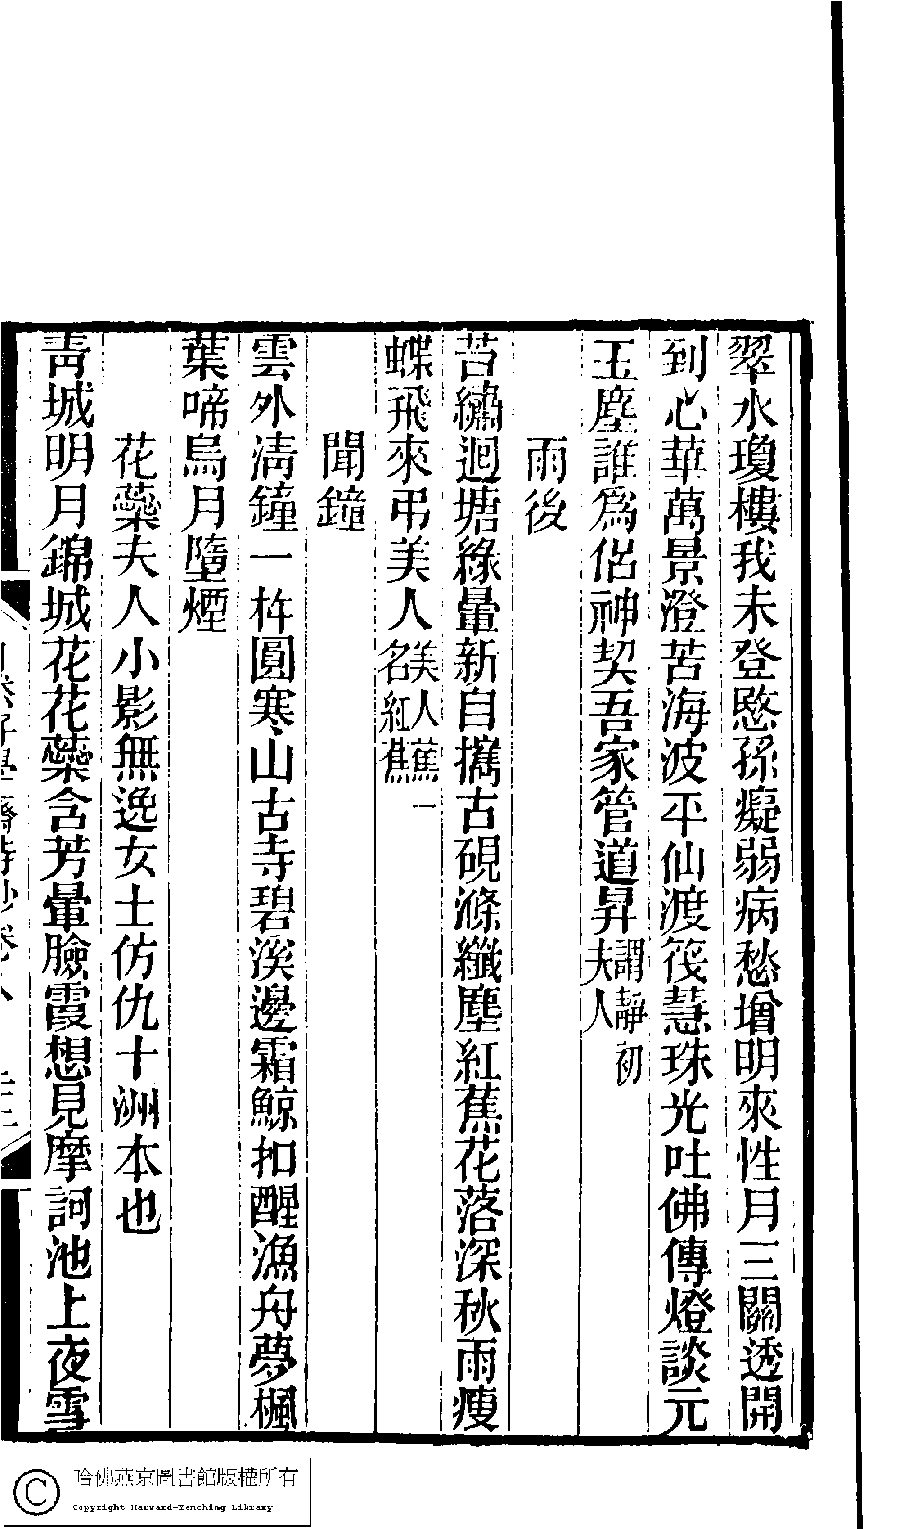 翠水瓊樓我未登愍孫癡弱病愁增明來性月三關透開
到心華萬景澄苦海波平仙渡筏慧珠光吐佛傳燈談元
玉麈誰爲侶神契吾家管道昇謂靜初夫人
雨後
苔繡迴塘綠暈新自攜古硯滌纖塵紅蕉花落深秋雨瘦
蝶飛來弔美人美人蕉一名紅蕉
聞鐘
雲外淸鐘一杵圓寒山古寺碧溪邊霜鯨扣醒漁舟夢楓
葉啼烏月墮煙
花蘂夫人小影無逸女士仿仇十洲本也
靑城明月錦城花花蘂含芳暈臉霞想見摩訶池上夜雪
自然好學齋詩鈔卷八
哈佛燕京圖書館版權所有
Copyright Harvard-Yenching Library